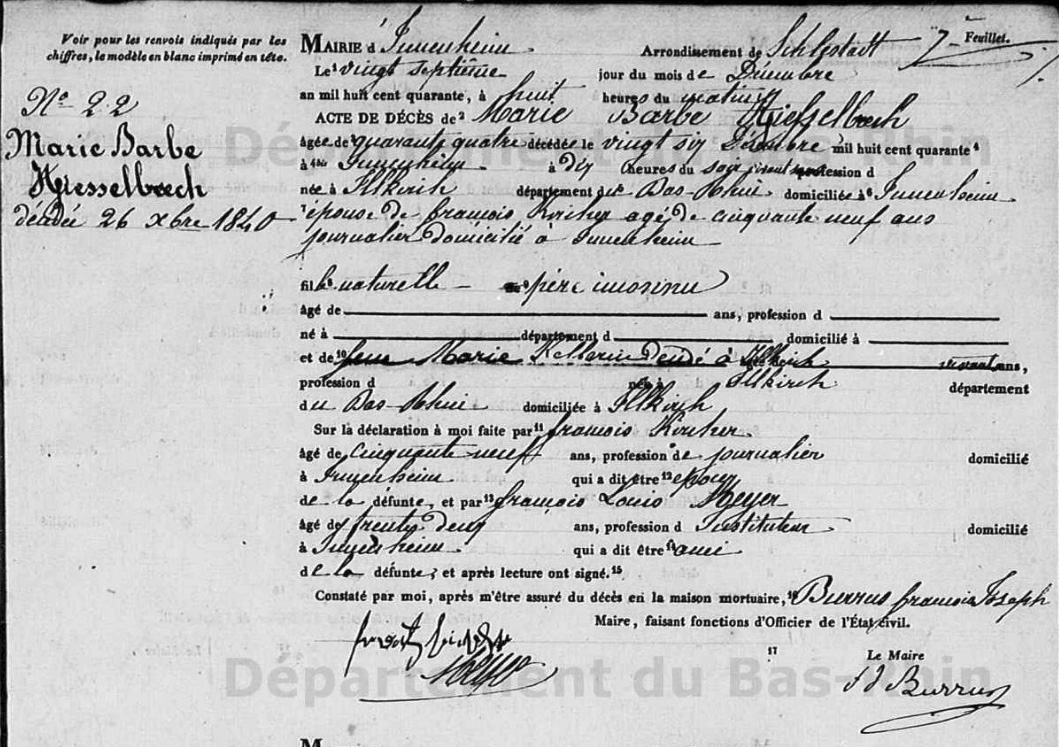 Voir pour les renvois indiqués par les
chiffres, le modèle en blanc imprimé en tête.
Nº 22
Marie Barbe
Hiesselbæch
décédée 26 Xbre 1840
7e Feuillet.
MAIRIE d'Innenheim Arrondissement de Schlestadt
Le 1 vingt septième jour du mois de Décembre
an mil huit cent quarante, à huit heures du matin
ACTE DE DÉCÈS de 2 Marie Barbe Hiesselbæch
âgée de quarante quatre décédée le vingt six Décembre mil huit cent quarante 4
à Innenheim à dix heures du soir profession d
née à Illkirch département du Bas-Rhin domiciliée à 6 Innenheim
7 épouse de françois Kircher agé de cinquante neuf ans
journalier domicilié à Innenheim
fille 8 naturelle – père inconnu
âgé de ans, profession d
né à département d domicilié à
et de 10 feue Marie Kellerin décédé à Illkirch ans,
profession d née à Illkirch département
du Bas-Rhin domiciliée à Illkirch
Sur la déclaration à moi faite par 11 françois Kircher
âgé de Cinquante neuf ans, profession de journalier domicilié
à Innenheim qui a dit être 12 époux
de la défunte, et par 13 françois Louis Meyer
âgé de trente deux ans, profession d Instituteur domicilié
à Innenheim qui a dit être 14 ami
de la défunte, et après lecture ont signé. 15
Constaté par moi, après m'être assuré du décès en la maison mortuaire, 16 Burrus françois Joseph
Maire, faisant fonctions d'Officier de l'État civil.
17
Le Maire
Meyer
fJ Burrus
Département du Bas-Rhin
Département du Bas-Rhin
M